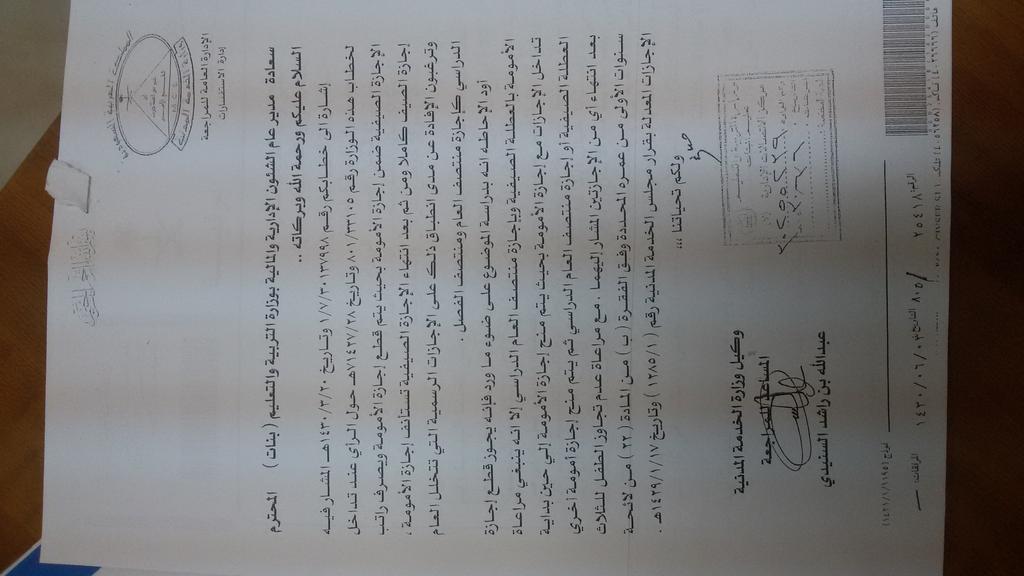 بسم الله الرحمن الرحيم
المملكة العربية السعودية
وزارة الخدمة المدنية
الإدارة العامة للمراجعة
إدارة الاستشارات
سعادة مدير عام الشئون الإدارية والمالية بوزارة التربية والتعليم ( بنات ) المحترم
السلام عليكم ورحمة الله وبركاته ..
إشارة الى خطابكم رقم ١/٧/٣٠١٣٧/٩٨ وتاريخ ١٤٣٠/٣/٢٠هـ المشار فيه
لخطاب هذه الوزارة رقم ٨٠١/٣٣١٠٥ وتاريخ ١٤٢٧/٧/٢٨هـ حول الرأي عند تداخل
الإجازة الصيفية ضمن إجازة الأمومة بحيث يتم قطع إجازة الأمومة ويصرف راتب
إجازة الصيف كاملا ومن ثم بعد انتهاء الإجازة الصيفية تستأنف إجازة الأمومة ،
وترغبون الإفادة عن مدى انطباق ذلك على الإجازات الرسمية التي تتخلل العام
الدراسي كإجازة منتصف العام ومنتصف الفصل .
أود الإحاطة انه بدراسة الموضوع على ضوء ما ورد فإنه يجوز قطع إجازة
الأمومة بالعطلة الصيفية وبإجازة منتصف العام الدراسي إلا انه ينبغي مراعاة
تداخل الإجازات مع إجازة الأمومة بحيث يتم منح إجازة الأمومة الى حين بداية
العطلة الصيفية أو إجازة منتصف العام الدراسي ثم يتم منح إجازة امومة أخرى
بعد انتهاء اي من الإجازتين المشار اليهما . مع مراعاة عدم تجاوز الطفل للثلاث
سنوات الأولى من عمره المحددة وفق الفقرة ( ب ) من المادة ( ٢٢ ) من لائحة
الإجازات المعدلة بقرار مجلس الخدمة المدنية رقم ( ١٣٨٥/١ ) وتاريخ ١٤٢٩/١/١٧هـ .
ولكم تحياتنا ،،،
وكيل وزارة الخدمة المدنية
المساعد للمراجعة
عبدالله بن راشد السنيدي
الرقم: ٢٥٤١٨ / ٨٠٥ التاريخ: ١٤٣٠/٠٦/٠٣ المرفقات: